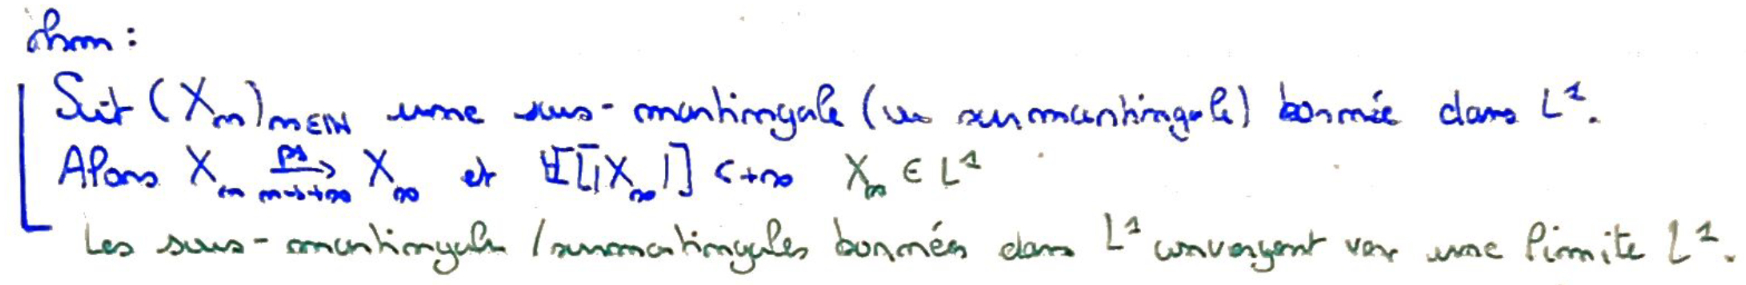 Thm :
Soit (X_n)_{n∈ℕ} une sous-martingale (ou surmartingale) bornée dans L^1.
Alors X_n \xrightarrow[n→+∞]{ps} X_∞ et 𝔼[|X_∞|] <+∞ X_∞ ∈ L^1
Les sous-martingales / surmartingales bornées dans L^1 convergent vers une limite L^1.